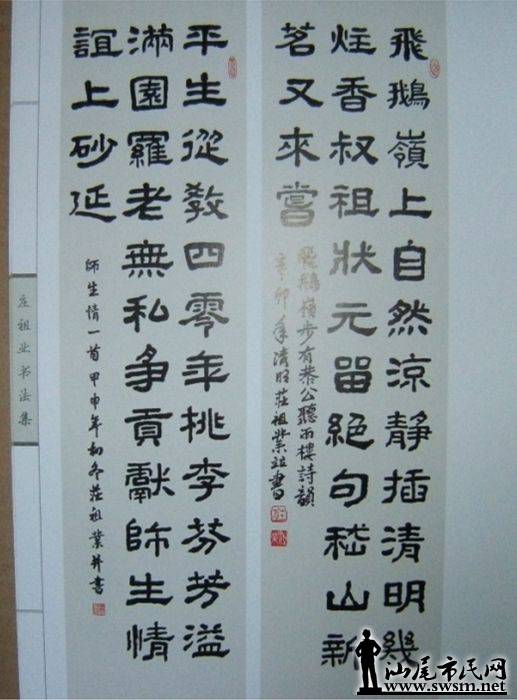 飛鵝嶺上自然涼靜插清明幾
炷香叔祖狀元留絕句嵇山新
茗又來嘗
飛鵝嶺步有恭公聽雨樓詩韻
辛卯年清明莊祖業並書
平生從教四零年桃李芬芳溢
滿園羅老無私爭貢獻師生情
誼上砂延
師生情一首甲申年初冬莊祖業并書
庄祖业书法集
汕尾市民网
www.swsm.net